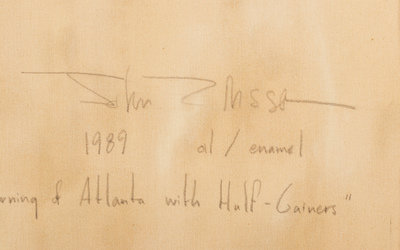 John
1989 oil / enamel
rning of Atlanta with Half-Gainers"